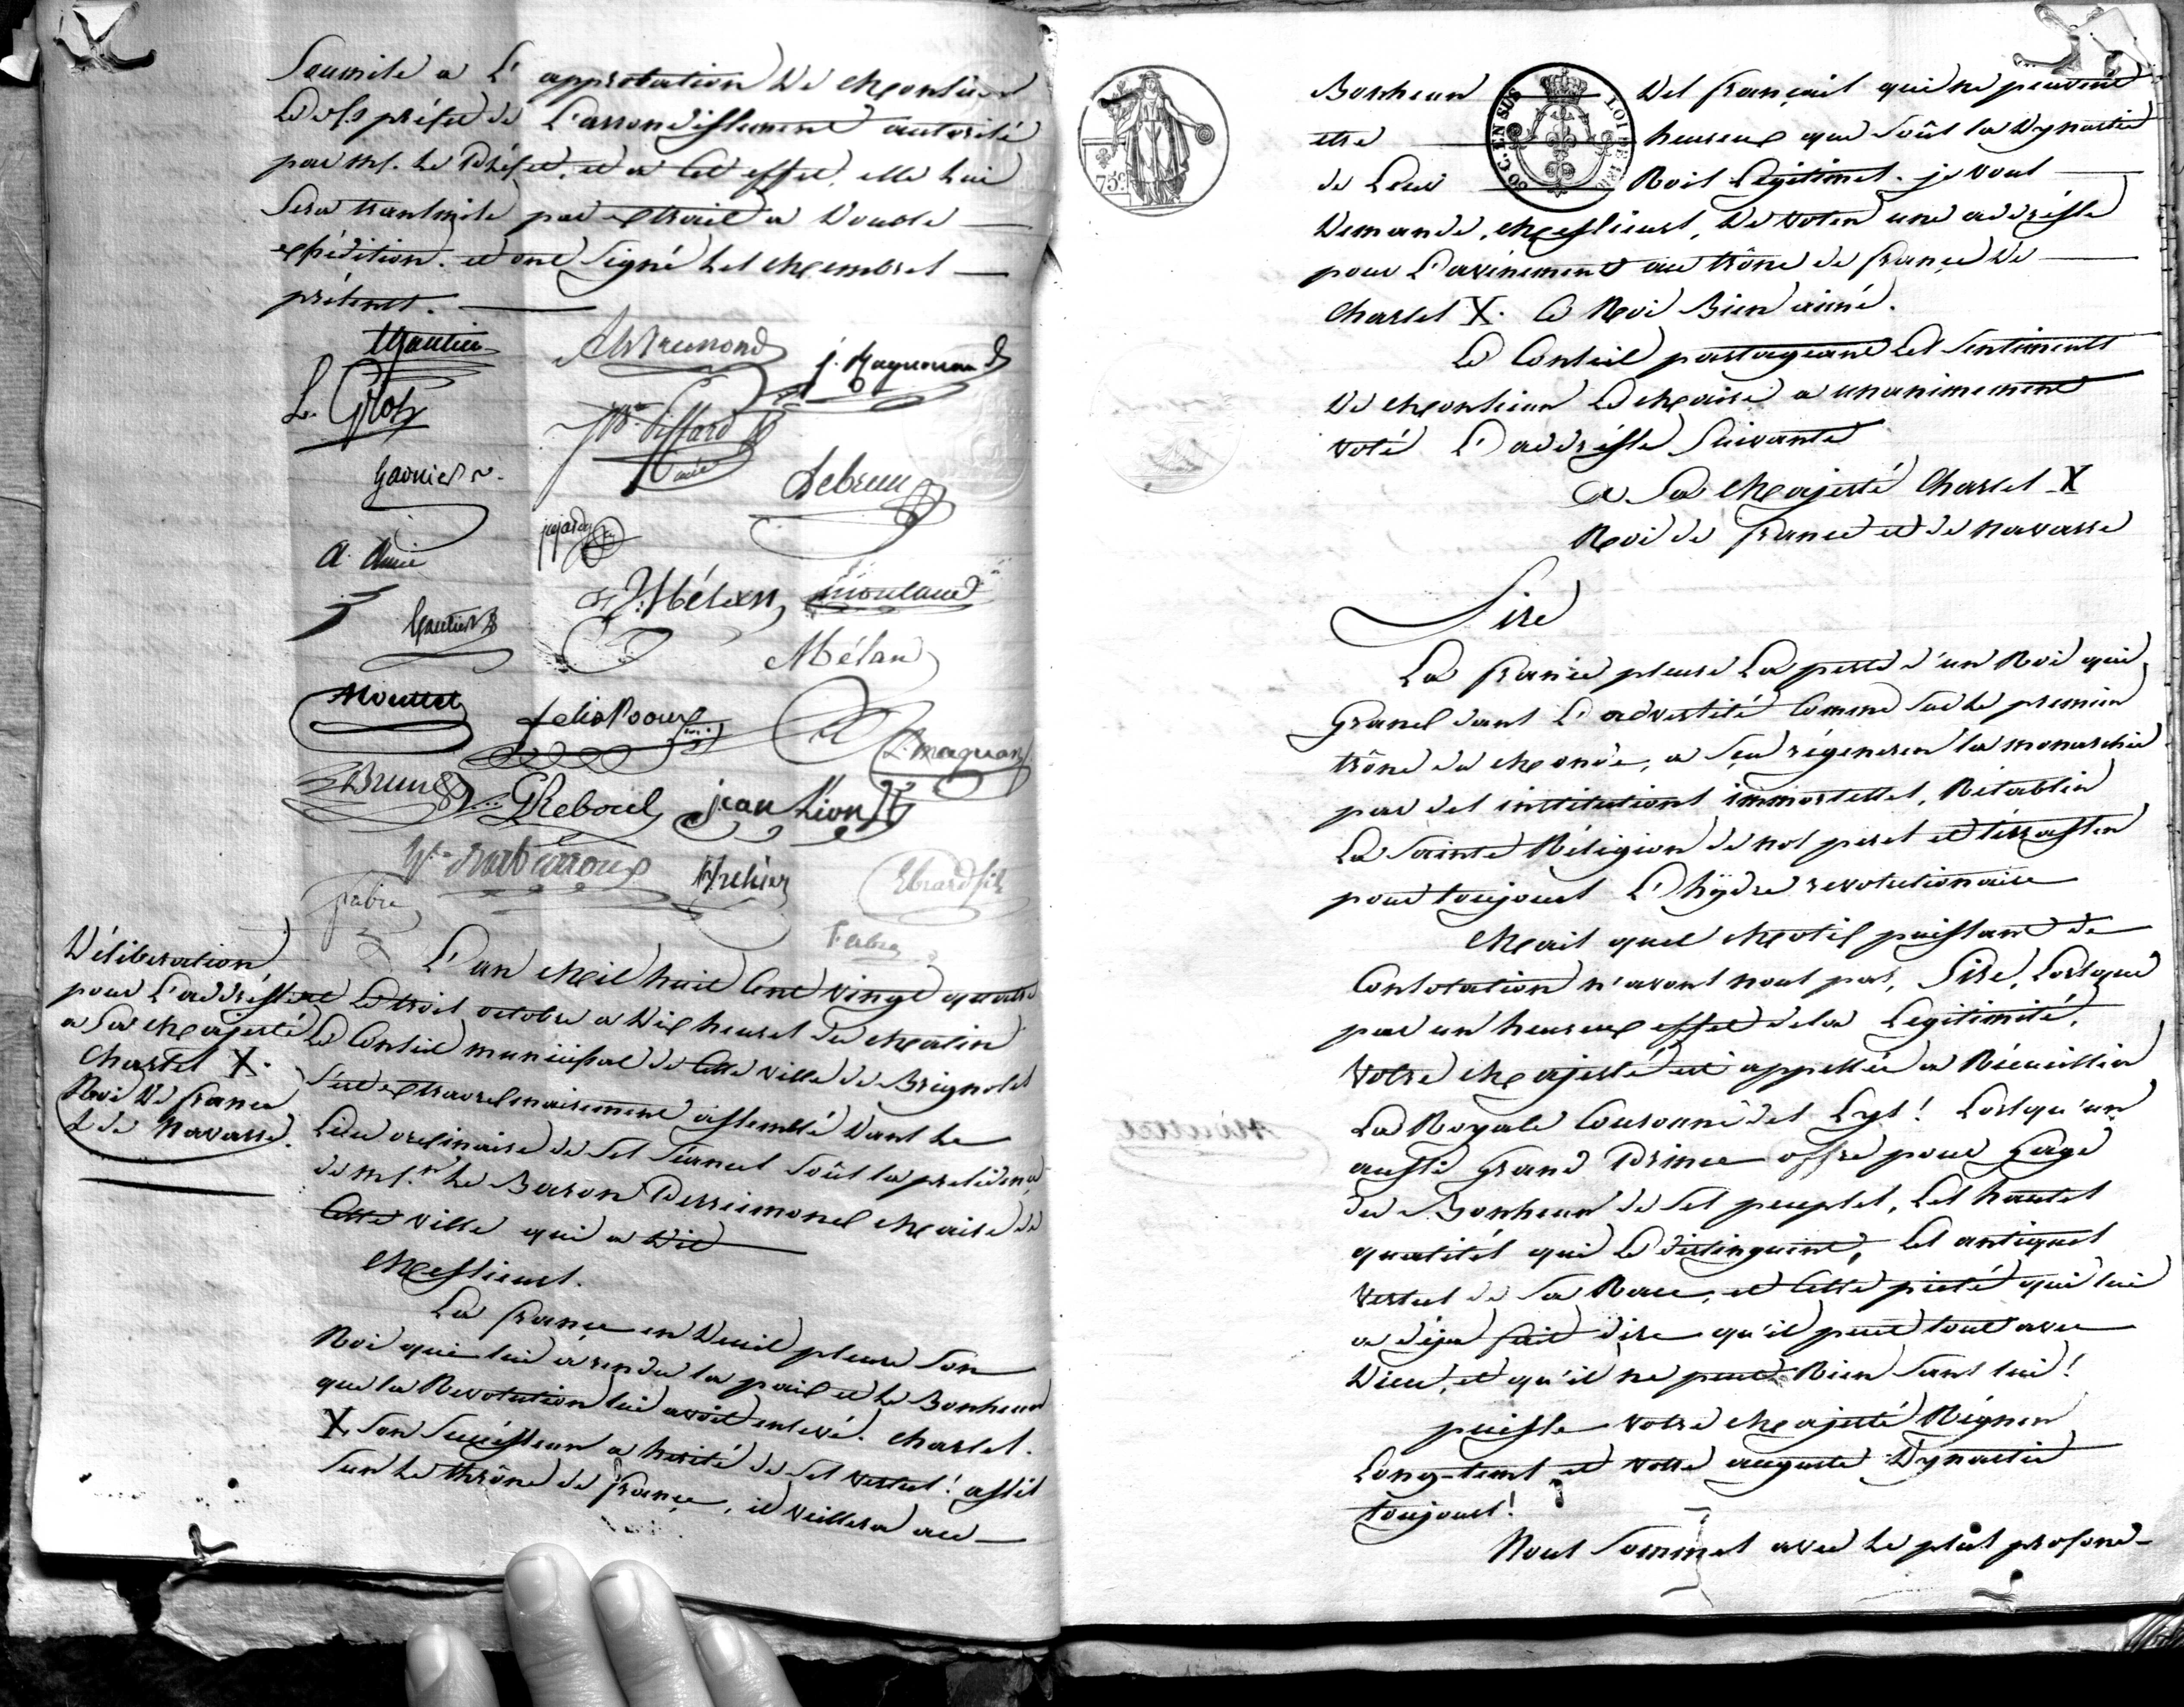 Soumise a L'approbation De Monsieur
Le Sous préfet de L'arrondissement autorisé
par Mr. Le Préfet, et a Cet effet, elle lui
Sera transmise par extrait a Double
expédition. et ont Signé Les Membres
présents.
Gautier
A Drumond
j. Maquouand
L. Gros
Piffard
Garnier
Lebrun
a. Amic
jujardy
J. Mélan
Moutaud
Gautier
Mélan
Mouttet
felix Roux
L. maquan
Brun
G Reboul
jean Léon
Barbarroux
Hrelier
Ebrard fils
fabre
Fabre
Déliberation
pour L'addrésse
a Sa Majesté
Charles X.
Roi De france
& de Navarre.
L'an Mil huit Cent vingt quatre
et Le trois octobre a Dix heures du Matin
Le Conseil municipal de Cette ville de Brignoles
S'est extraordinairement assemblé Dans Le
Lieu ordinaire de Ses Séances Soûs la présidence
de Mr. Le Baron Perrimond Maire de
Cette ville qui a Dit
Messieurs.
La france en Deuil pleure Son
Roi qui lui a rendu la paix et Le Bonheur
que la Revolution lui avoit enlevé. Charles.
X. Son Succésseur a herité de Ses vertus! assis
Sur Le thrône de france, il veillera au
75c.
50 C. EN SUS
LOI DE 1816
Bonheur Des français qui ne peuvent
etre heureux que Soûs la Dynastie
de Leurs Rois Légitimes. je vous
Demande, Messieurs, De voter une addrésse
pour L'avénement au trône de france De
Charles X. Ce Roi Bien aimé.
Le Conseil partageant Les Sentiments
De Monsieur Le Maire a unanimement
voté L'addrésse Suivante
A Sa Majesté Charles X
Roi de france et de navarre
Sire
La france pleure La perte d'un Roi qui,
Grand dans L'adversité Comme Sur Le premier
trône du Monde, a Sçu régénerer la monarchie
par des institutions immortelles, Rétablir
La Sainte Réligion de nos peres et térrasser
pour toujours L'hÿdre revolutionaire
Mais quel Motif puissant de
Consolation n'avons nous pas, Sire, Lorsque
par un heureux effet de la Legitimité,
Votre Majesté est appellée a Récueillir
La Royale Couronne des Lys! Lorsqu'un
aussi Grand Prince offre pour Gage
du Bonheur de Ses peuples, Les hautes
qualités qui Le distinguent, Les antiques
vertus de Sa Race, et Cette piété qui lui
a déja fait dire qu'il peut tout avec
Dieu, et qu'il ne peut Rien Sans lui!
puisse votre Majesté Régner
Long-tems et votre auguste Dynastie
toujours!
Nous Sommes avec Le plus profond